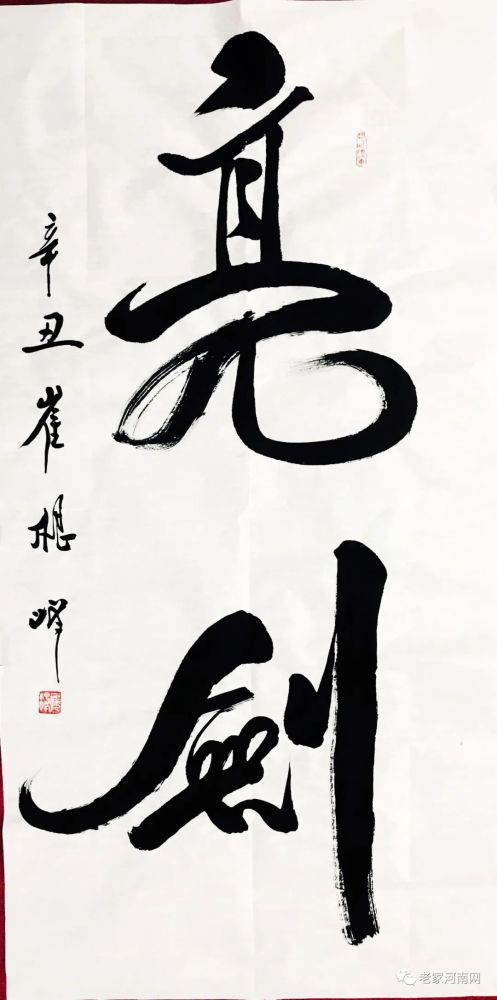 亮剑
辛丑崔根峰
老家河南网